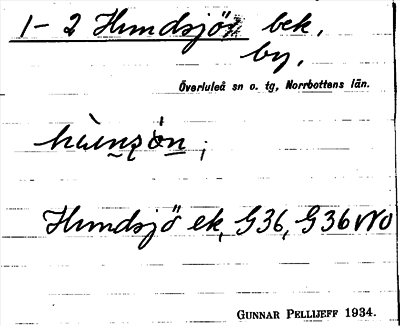 1-2 Hundsjön bek,
by,
Överluleå sn o. tg, Norrbottens län.
hùnsòn ;
Hundsjö ek, G36, G36 NO
GUNNAR PELLIJEFF 1934.